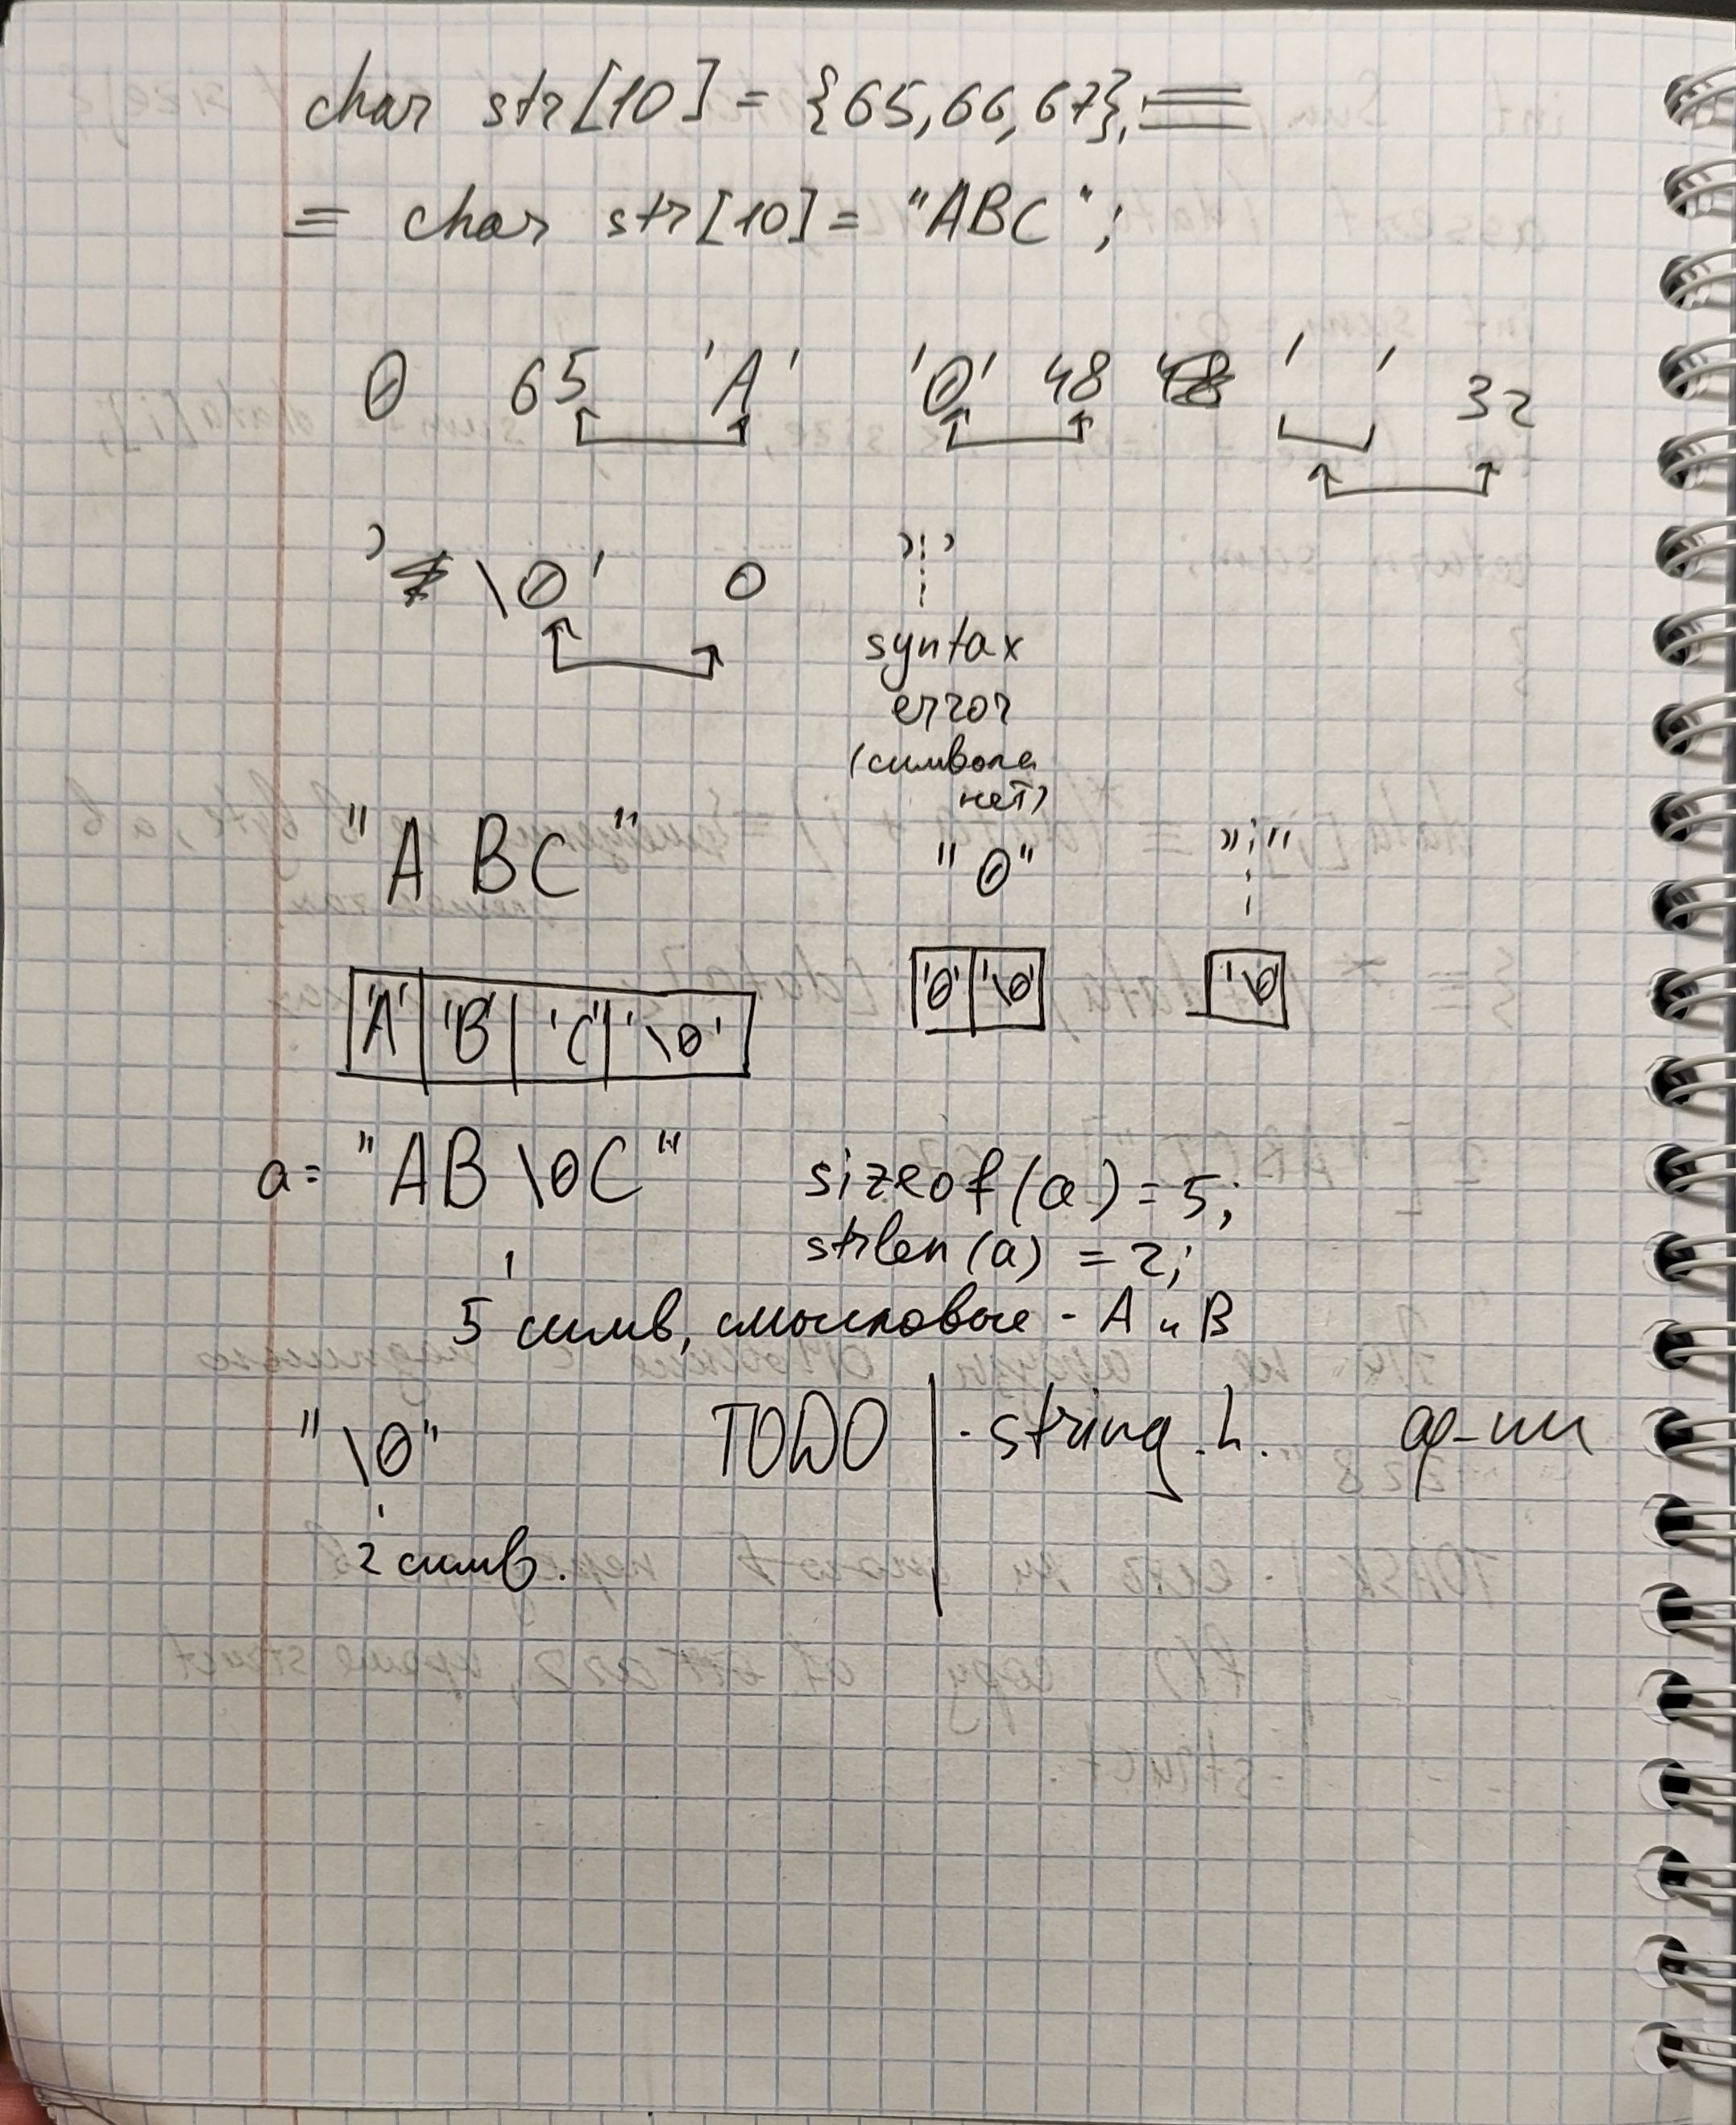 char str[10] = {65,66,67}; ≡
= char str[10] = "ABC";
0 65 'A' '0' 48 ' ' 32
'\0' 0 ''
syntax
error
(символа
нет)
"ABC" "0" ""
'A' 'B' 'C' '\0' '0' '\0' '\0'
a = "AB\0C" sizeof(a) = 5;
strlen(a) = 2;
5 симв, смысловые - A и B
"\0" TODO | · string.h. ф-ии
2 симв.